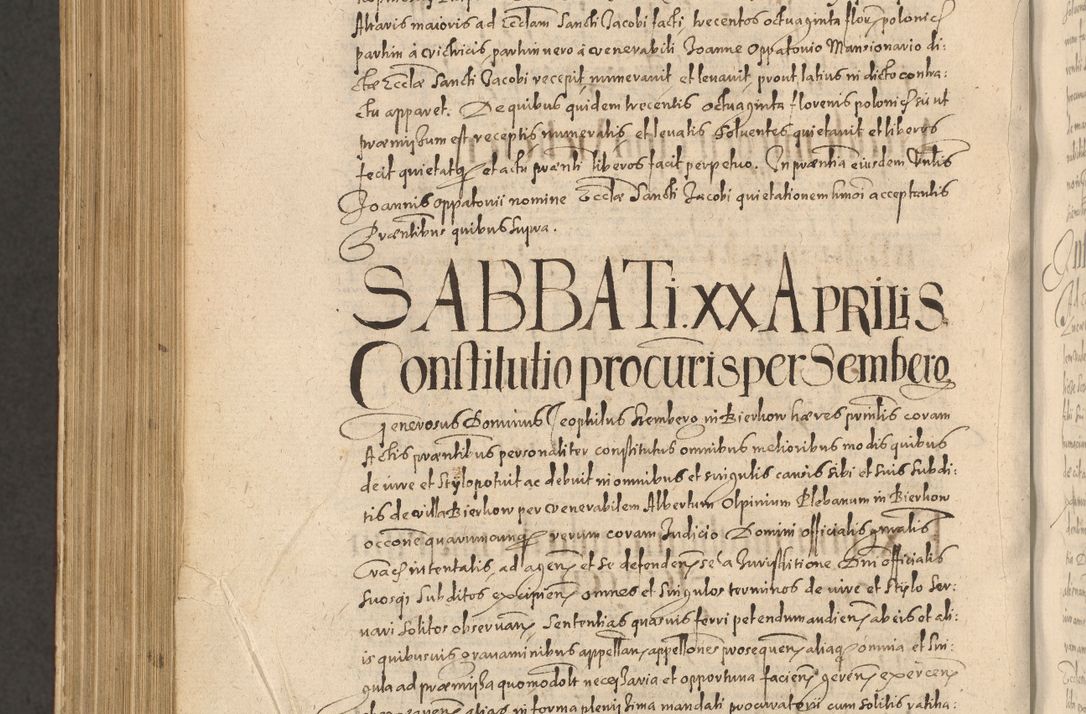 Altaris maioris ad Eccłam Sancti Jacobi facti, trecentos octuaginta flor, polonic
partim à victricis, partim vero à venerabili Joanne Oppatovio Mansionario di-
ctæ Ecclæ Sancti Jacobi recepit, numeravit et levavit, prout latius in dicto contra-
ctu apparet. De quibus quidem trecentis octuaginta florenis polonic sic ut
præmissum est receptis numeratis et levatis solventes quietavit et liberos
fecit quietatq et actu prænti liberos facit perpetuo. In præntia eiusdem Vnlis
Joannis Oppatovii nomine Ecclæ Sancti Jacobi quietationem hmoi acceptantis
Præntibus quibus supra.
SABBATi. XX APRILIS
Constitutio procuris per Semberg
Generosus Dominus Teophilus Semberg in Bierkow hæres prntis coram
Actis præntibus personaliter constitutus omnibus melioribus modis quibus
de iure et stylo potuit ac debuit in omnibus et singulis causis sibi et suis subdi-
tis de villa Bierkow per venerabilem Albertum Olpinium Plebanum in Bierkow
occone quarumcunq rerum coram Judicio Domini Officialis gnralis
Crac intentatis, ad agen et se defenden se a Jurisditione Dni Officialis
suosq subditos excipien, omnes et singulos terminos de iure et stylo ser-
vari solitos observan, sententias quasvis ferri peten dum audien, ab eis et ali-
is quibusvis gravaminibus appellan, appellones prosequen, aliaq omnia et sin-
gula ad præmissa quomodolt necessaria et opportuna facien, geren, exercen
aliàs in forma plenissima mandati procuratorii cum solitis ratiha-